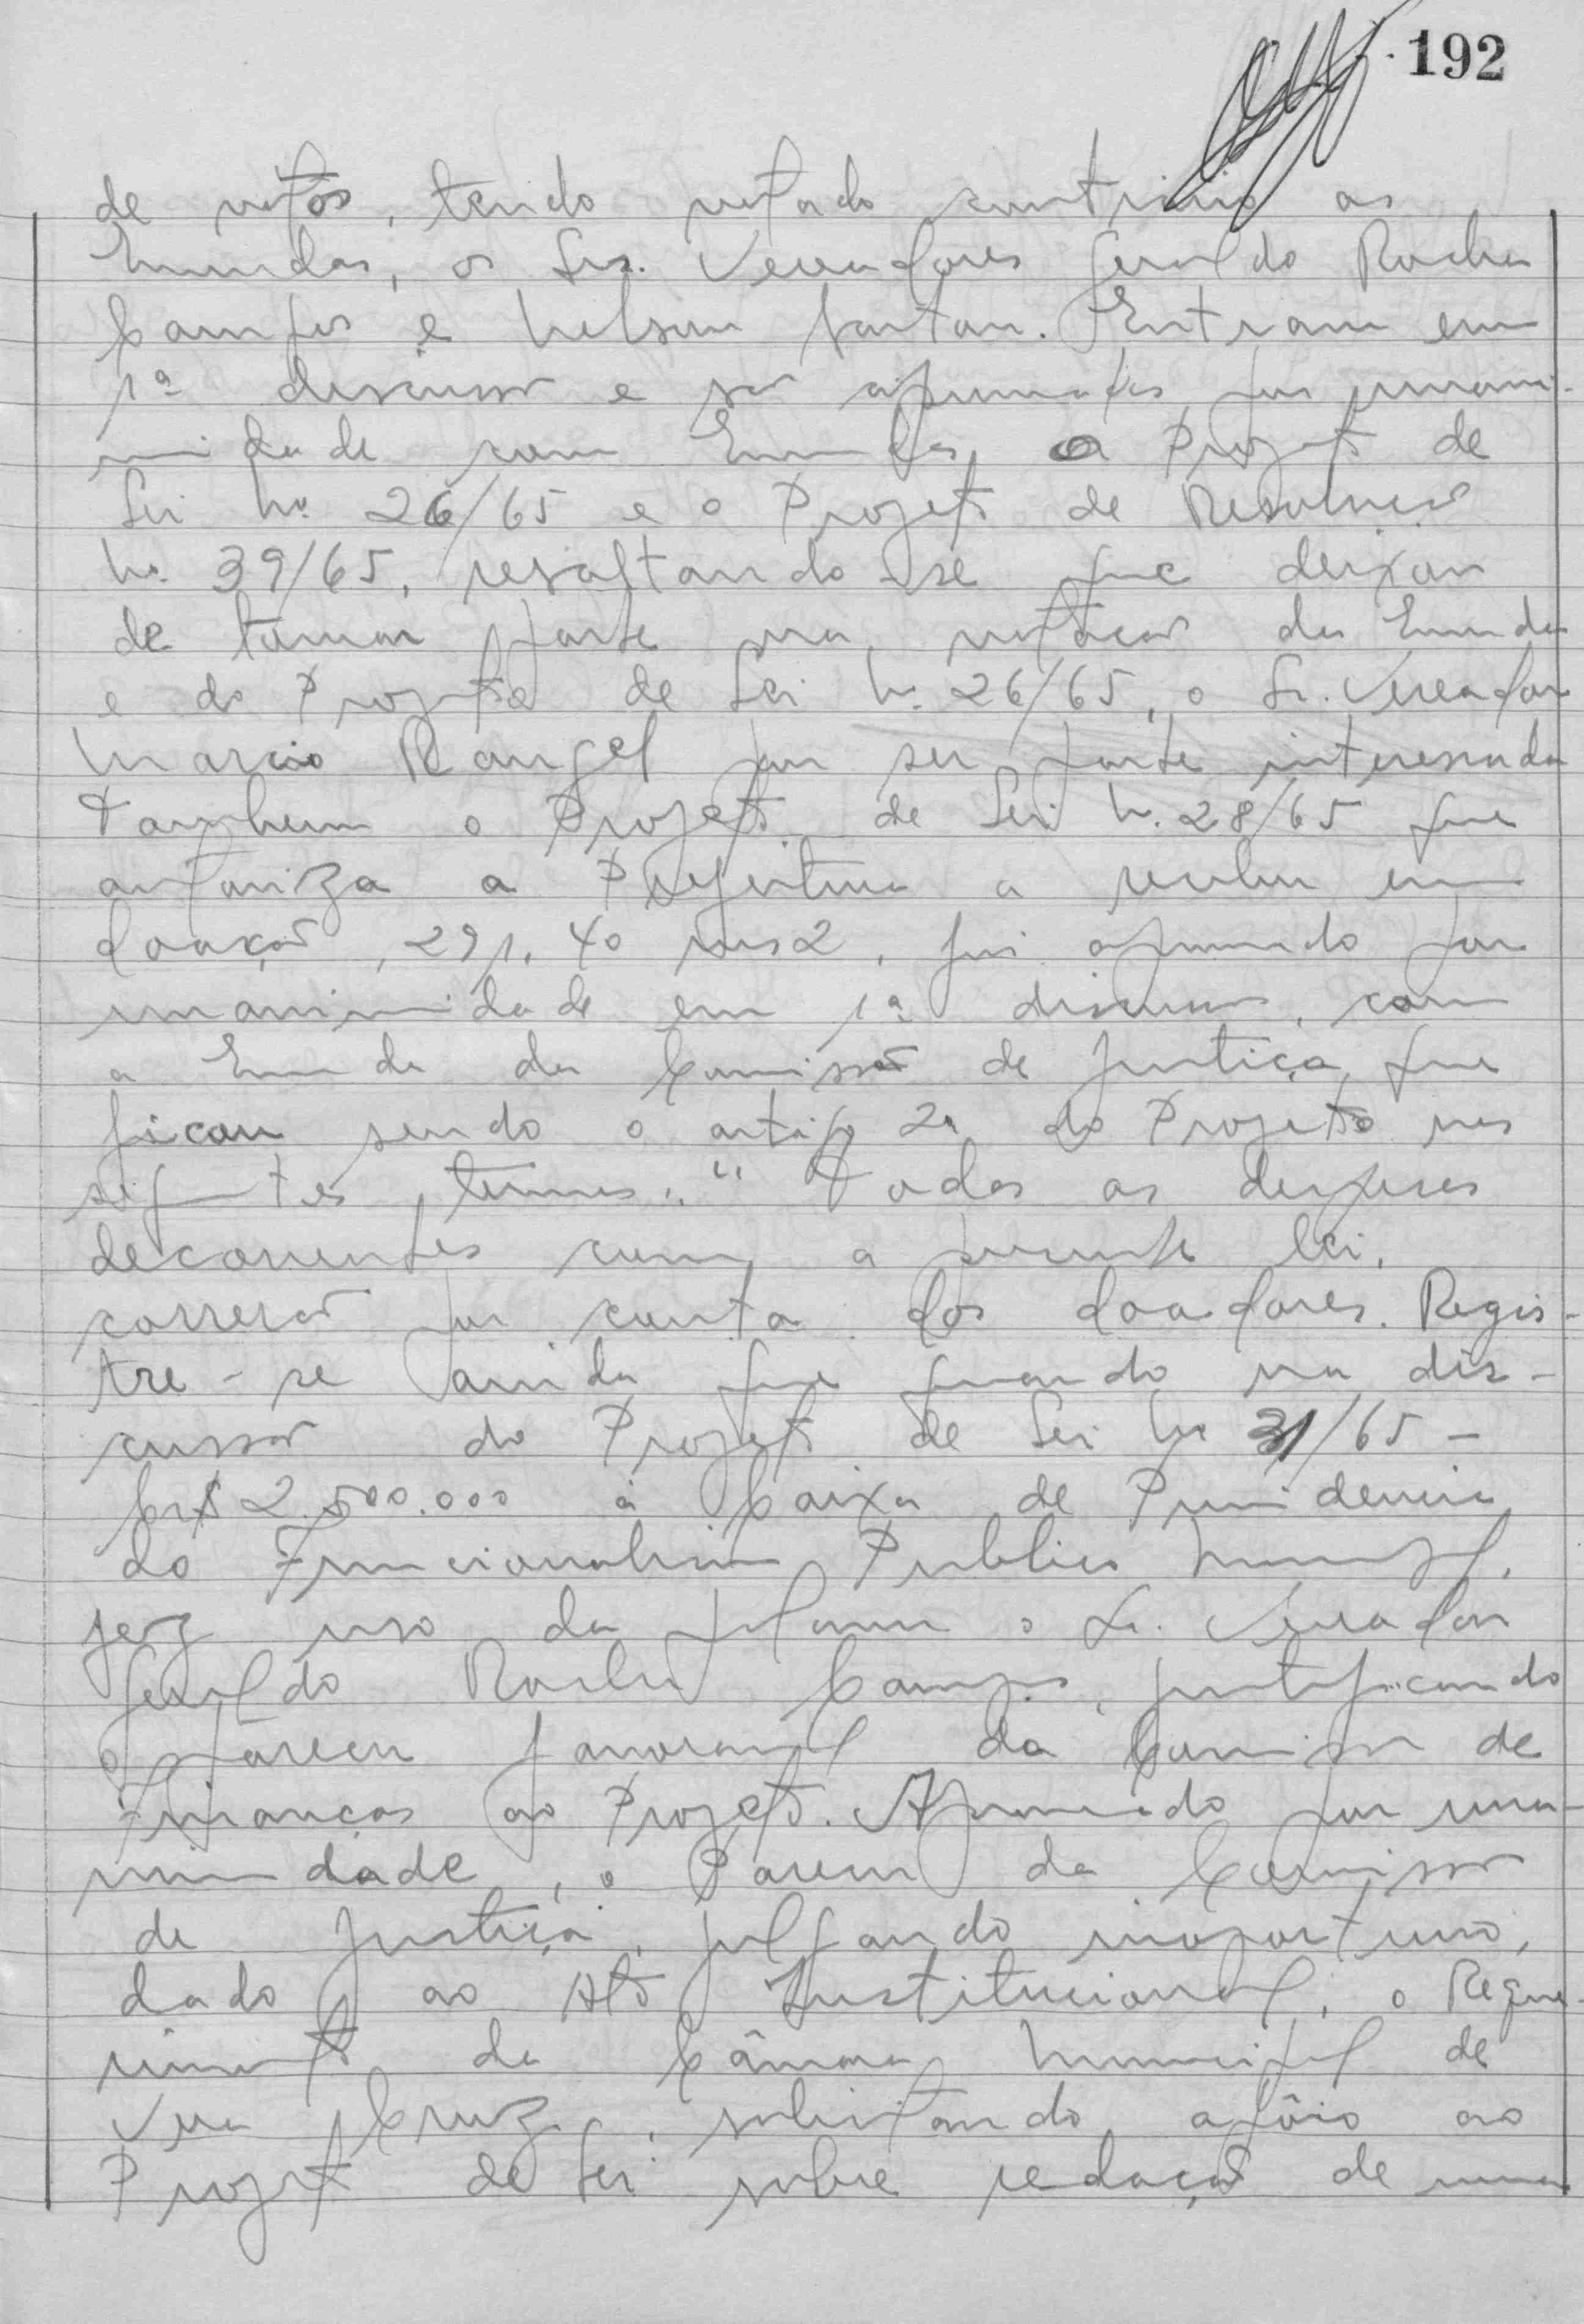 192
de votos, tendo votado contrário as
Emendas, os Srs. Vereadores Geraldo Rocha
Campos e Nelson . Entram em
1ª discussão e são aprovados por unani-
midade com Emendas, o Projeto de
Lei nº 26/65 e o Projeto de Resolução
nº 39/65, resaltando-se que deixou
de tomar parte na votação da Emenda
e do Projeto de Lei nº 26/65, o Sr. Vereador
Marcio Rangel por ser parte interessada
Tambem o Projeto de Lei nº 28/65 que
autoriza a Prefeitura a receber em
doação, 291,40 ms2, foi aprovado por
unanimidade em 1ª discussão, com
a Emenda da Comissão de Justiça, que
ficou sendo o artigo 2º do Projeto nos
seguintes termos: " Todas as despesas
decorrentes com a presente lei,
correrão por conta dos doadores. Regis-
tre-se ainda que quando na dis-
cussão do Projeto de Lei nº 31/65 -
Cr$ 2.500.000 à Caixa de Previdencia
do Funcionalismo Publico Municipal,
fez uso da palavra o Sr. Vereador
Geraldo Rocha Campos, justificando
o parecer favoravel da Comissão de
Finanças ao Projeto. Aprovado por una-
nimidade, o Parecer da Comissão
de Justiça, julgando inoportuno,
dado ao Ato Institucional, o Reque-
rimento da Câmara Municipal de
Vera Cruz, solicitando apôio ao
Projeto de Lei sobre redação de uma